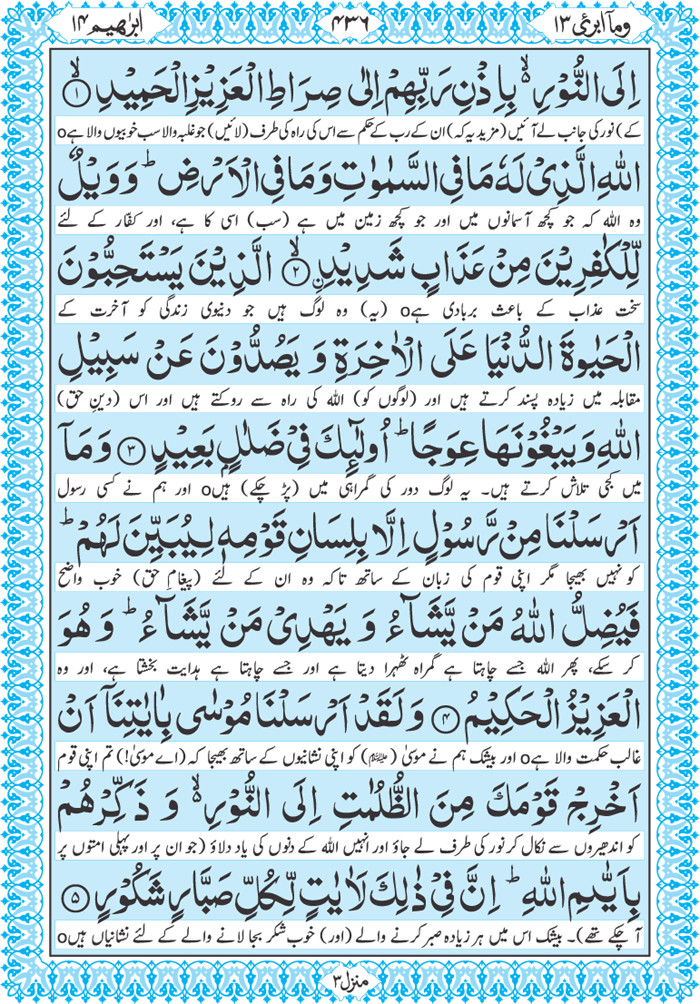 ومآ ابرئ ١٣
٤٣٦
ابرٰهيم ١٤
اِلَى النُّوْرِ ۙ۬ بِاِذْنِ رَبِّهِمْ اِلٰى صِرَاطِ الْعَزِيْزِ الْحَمِيْدِ ۙ﴿١﴾
کے) نور کی جانب لے آئیں (مزید یہ کہ) ان کے رب کے حکم سے اس کی راہ کی طرف (لائیں) جو غلبہ والا سب خوبیوں والا ہےo
اللّٰهِ الَّذِىْ لَهٗ مَا فِى السَّمٰوٰتِ وَمَا فِى الْاَرْضِ ؕ وَوَيْلٌ
وہ اللہ کہ جو کچھ آسمانوں میں اور جو کچھ زمین میں ہے (سب) اسی کا ہے، اور کفّار کے لئے
لِّلْكٰفِرِيْنَ مِنْ عَذَابٍ شَدِيْدِ ۙ﴿٢﴾ الَّذِيْنَ يَسْتَحِبُّوْنَ
سخت عذاب کے باعث بربادی ہےo (یہ) وہ لوگ ہیں جو دنیوی زندگی کو آخرت کے
الْحَيٰوةَ الدُّنْيَا عَلَى الْاٰخِرَةِ وَ يَصُدُّوْنَ عَنْ سَبِيْلِ
مقابلہ میں زیادہ پسند کرتے ہیں اور (لوگوں کو) اللہ کی راہ سے روکتے ہیں اور اس (دینِ حق)
اللّٰهِ وَ يَبْغُوْنَهَا عِوَجًا ؕ اُولٰٓئِكَ فِىْ ضَلٰلٍۭ بَعِيْدٍ ﴿٣﴾ وَ مَاۤ
میں کجی تلاش کرتے ہیں۔ یہ لوگ دور کی گمراہی میں (پڑ چکے) ہیںo اور ہم نے کسی رسول
اَرْسَلْنَا مِنْ رَّسُوْلٍ اِلَّا بِلِسَانِ قَوْمِهٖ لِيُبَيِّنَ لَهُمْ ؕ
کو نہیں بھیجا مگر اپنی قوم کی زبان کے ساتھ تاکہ وہ ان کے لئے (پیغامِ حق) خوب واضح
فَيُضِلُّ اللّٰهُ مَنْ يَّشَآءُ وَ يَهْدِىْ مَنْ يَّشَآءُ ؕ وَ هُوَ
کر سکے، پھر اللہ جسے چاہتا ہے گمراہ ٹھہرا دیتا ہے اور جسے چاہتا ہے ہدایت بخشتا ہے، اور وہ
الْعَزِيْزُ الْحَكِيْمُ ﴿٤﴾ وَ لَقَدْ اَرْسَلْنَا مُوْسٰى بِاٰيٰتِنَاۤ اَنْ
غالب حکمت والا ہےo اور بیشک ہم نے موسٰی (ﷺ) کو اپنی نشانیوں کے ساتھ بھیجا کہ (اے موسٰی!) تم اپنی قوم
اَخْرِجْ قَوْمَكَ مِنَ الظُّلُمٰتِ اِلَى النُّوْرِ ۙ۬ وَ ذَكِّرْهُمْ
کو اندھیروں سے نکال کر نور کی طرف لے جاؤ اور انہیں اللہ کے دنوں کی یاد دلاؤ (جو ان پر اور پہلی امتوں پر
بِاَيّٰىمِ اللّٰهِ ؕ اِنَّ فِىْ ذٰلِكَ لَاٰيٰتٍ لِّكُلِّ صَبَّارٍ شَكُوْرٍ ﴿٥﴾
آ چکے تھے)۔ بیشک اس میں ہر زیادہ صبر کرنے والے (اور) خوب شکر بجا لانے والے کے لئے نشانیاں ہیںo
منزل ٣